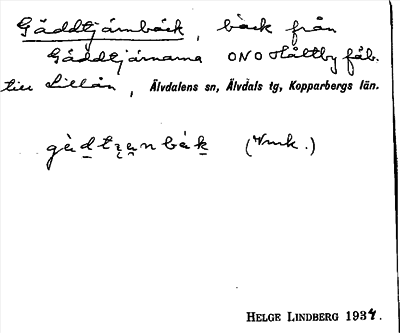 Gäddtjärnbäck, bäck från
Gäddtjärnarna ONO Håltby fäb.
till Lillån, Älvdalens sn, Älvdals tg, Kopparbergs län.
(Vmk.)
HELGE LINDBERG 1934.